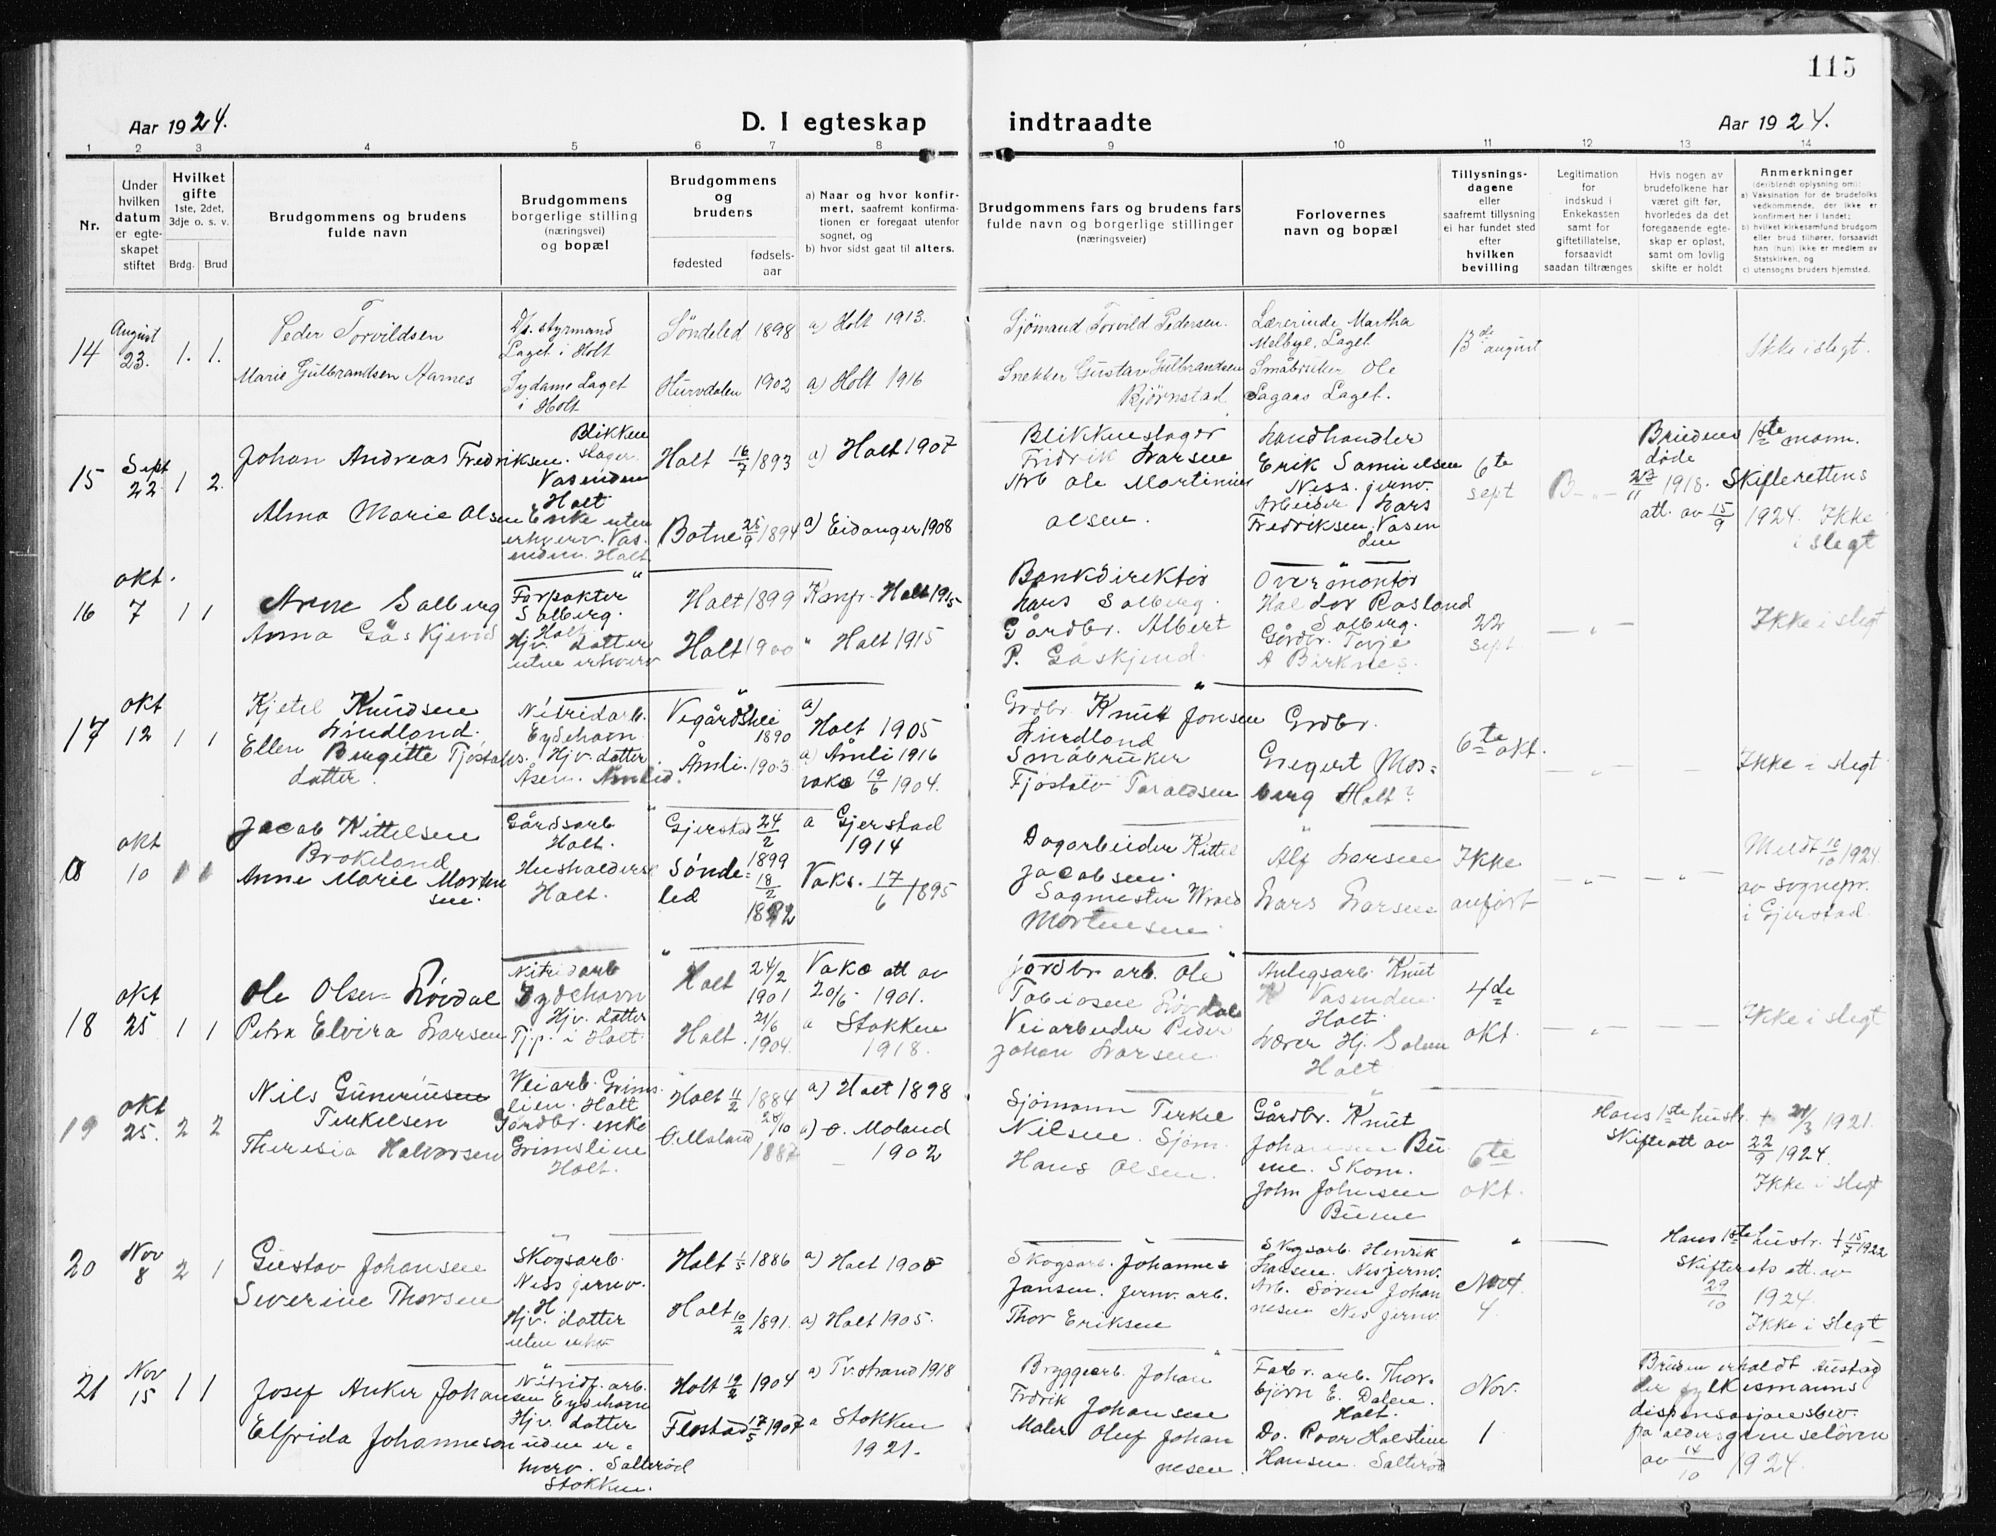 115
Aar 1924.
D. I egteskap indtraadte
Aar 1924.
1 2 3 4 5 6 7 8 9 10 11 12 13 14
Nr.
Under hvilken datum er egteskapet stiftet
Hvilket gifte 1ste, 2det, 3dje o. s. v.
Brdg. Brud
Brudgommens og brudens fulde navn
Brudgommens borgerlige stilling (næringsvei) og bopæl
Brudgommens og brudens
fødested
fødselsaar
a) Naar og hvor konfirmert, saafremt konfirmationen er foregaat utenfor sognet, og
b) hvor sidst gaat til alters.
Brudgommens fars og brudens fars fulde navn og borgerlige stillinger (næringsveier)
Forlovernes navn og bopæl
Tillysningsdagene eller saafremt tillysning ei har fundet sted efter hvilken bevilling
Legitimation for indskud i Enkekassen samt for giftetillatelse, forsaavidt saadan tiltrænges
Hvis nogen av brudefolkene har været gift før, hvorledes da det foregaaende egteskap er opløst, samt om lovlig skifte er holdt
Anmerkninger (deriblendt oplysning om):
a) Vaksination for de brudefolks vedkommende, der ikke er konfirmert her i landet;
b) hvilket kirkesamfund brudgom eller brud tilhører, forsaavidt han (hun) ikke er medlem av Statskirken, og
c) utensogns bruders hjemsted.
14 August 23. 1. 1.
Peder Torvildsen
Ds. styrmand Laget i Holt
Søndeled 1898 a) Holt 1913.
Sjømand Torvild Pedersen.
Lærerinde Martha Melbye, Laget
13de august
Ikke i slegt.
Marie Gulbrandsen Aarnes
Sydame Laget i Holt
Hurvdalen 1902 a) Holt 1916
Snekker Gustav Gulbrandsen Bjørnstad
Småbruker Ole Lagaas Laget.
15 Sept 22. 1 2.
Johan Andreas Fredriksen.
Blikkenslager. Vasenden Holt
Holt 16/7 1893 a) Holt 1907
Blikkenslager Fridrik Larsen
Landhandler Erik Samuelsen Ness. jernv.
6te sept
B - " -
Brudens 1ste mann. døde 23/11 1918. Skifterettens att. av 15/9 1924. Ikke i slegt
Alma Marie Olsen
Enke uten erhverv. Vasenden. Holt
Botne 25/9 1894 a) Eidanger 1908
Arb Ole Martinius Olsen.
Arbeider Lars Fredriksen Vasenden
16 okt. 7 1 1
Arne Solberg
Forpakter Solberg. Holt
Holt 1899 Konfr. Holt 1915
Bankdirektør Lars Solberg.
Overmontør Haldor Rosland Solberg.
22 sept
— " —
Ikke i slegt
Anna Gåskjend
Hjv. datter uten erhverv
Holt 1900 " Holt 1915
Gårdbr. Albert P. Gåskjend.
Gårdbr. Torje A Birknes.
17 okt 12 1 1
Kjetil Knudsen Lindland.
Nitridarb. Eydehavn
Vegårdshei 1890
a) Holt 1905
Grdbr. Knut Jonsen Lindland
Grdbr. Gregert Mosberg Holt?
6te okt.
— " —
Ikke i slegt
Ellen Birgitte Tjøstolvsdatter.
Hjv. datter. Åsen. Åmlid.
Åmli. 1903
a) Åmli 1916 vakc 19/6 1904.
Småbruker Tjøstolv Taraldsen
okt 10 1 1
Jacob Kittelsen Brokeland
Gårdsarb Holt.
Gjerstad 24/2 1899
a Gjerstad 1914
Dagarbeider Kittel Jacobsen.
Alf Larsen
Ikke anført
— " — — " —
Meldt 10/10 1924. av sognepr. i Gjerstad
Anne Marie Mortensen.
Husholderske Holt.
Søndeled 18/2
Vaks. 17/6 1895
Sagmester Mortensen.
Lars Larsen
18 okt 25 1 1
Ole Olsen Løvdal
Nitridarb Eydehavn
Holt 24/2 1901
Vakc att av 20/6 1901.
Jordbr arb. Ole Tobiasen Løvdal
Anlegsarb. Knut K Vasenden. Holt
4de okt.
— " —
Ikke i slegt
Petra Elvira Larsen
Hjv. datter Tjp. i Holt
Holt. 21/6 1904.
a Stokken 1918.
Veiarbeider Peder Johan Larsen
Lærer Hj. Solem Holt
19 okt 25. 2 2
Nils Gunerius Terkelsen
Veiarb. Grimslien. Holt
Holt 11/2 1884 a) Holt 1898
Sjømann Terkel Nilsen.
Gårdbr. Knut Johansen Buene.
6te okt.
Hans 1ste hustr. + 21/3 1921. Skifteatt av 22/9 1924. Ikke i slegt
Theresia Halvorsen
Gårdbr. enke Grimsliene Holt.
Ø. Moland 28/10 1887 a) Ø. Moland 1902
Sjøm. Hans Olsen.
Skom. John Johnsen Buene
20 Nov 8 2 1
Gustav Johansen
Skogsarb. Ness jernv. H
Holt 1/5 1886 a) Holt 1900
Skogsarb. Johannes Jansen.
Skogsarb. Henrik Hansen. Nesjernv.
Nov 4
Hans 1ste hustr. + 15/7 1922 Skifterets att. av 29/10 1924. Ikke i slegt
Severine Thorsen
Hjv. datter uten erhv
Holt 10/2 1891. a) Holt 1905.
Jernv. arb. Thor Eriksen
Arb. Søren Johannesen Nes jernv.
21 Nov 15 1 1
Josef Anker Johansen
Nitridf. arb. Eydehavn
Holt 19/2 1904 a) Tv.strand 1918
Bryggearb. Johan Fridrik Johansen
Fabr. arb. Thorbjørn E. Dalen. Holt.
Nov. 1
Bruden erholdt Austagder fylkesmanns dispensasjonsbev. på aldersgrenseloven av 14/10 1924.
Elfrida Johannesen
Hjv. datter uden erhverv. Salterød Stokken.
Flostad 17/5 1907 a Stokken 1921.
Maler Oluf Johannesen.
Do. Roar Holstine Hansen. Salterød